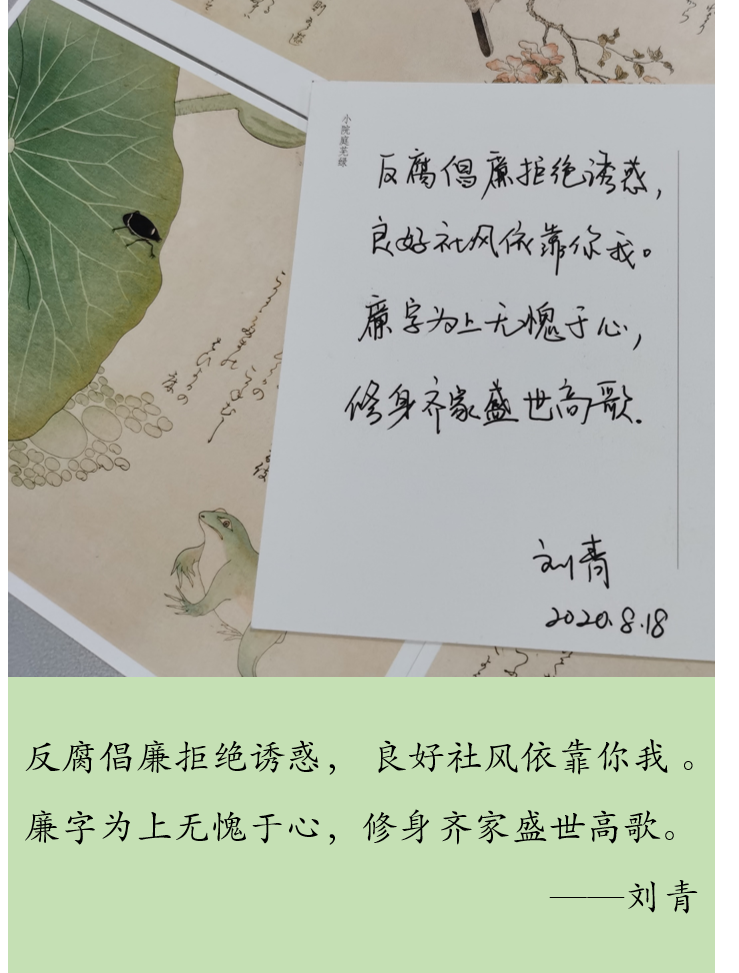 小院庭芜绿
反腐倡廉拒绝诱惑，
良好社风依靠你我。
廉字为上无愧于心，
修身齐家盛世高歌.
刘青
2020.8.18
反腐倡廉拒绝诱惑， 良好社风依靠你我 。
廉字为上无愧于心，修身齐家盛世高歌。
——刘青